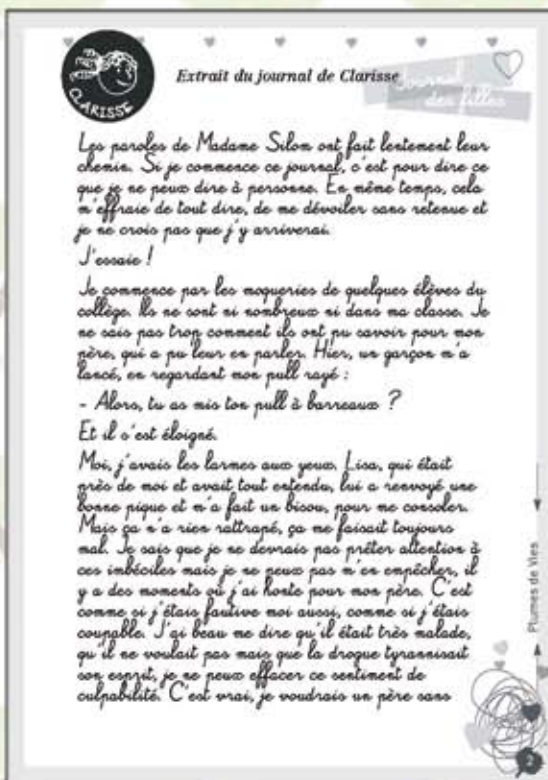 CLARISSE
Extrait du journal de Clarisse
Journal
des filles
Les paroles de Madame Silom ont fait lentement leur
chemin. Si je commence ce journal, c'est pour dire ce
que je ne peux dire à personne. En même temps, cela
m'effraie de tout dire, de me dévoiler sans retenue et
je ne crois pas que j'y arriverai.
J'essaie !
Je commence par les moqueries de quelques élèves du
collège. Ils ne sont ni nombreux ni dans ma classe. Je
ne sais pas trop comment ils ont pu savoir pour mon
père, qui a pu leur en parler. Hier, un garçon m'a
lancé, en regardant mon pull rayé :
- Alors, tu as mis ton pull à barreaux ?
Et il s'est éloigné.
Moi, j'avais les larmes aux yeux. Lisa, qui était
près de moi et avait tout entendu, lui a renvoyé une
bonne pique et m'a fait un bisou, pour me consoler.
Mais ça n'a rien rattrapé, ça me faisait toujours
mal. Je sais que je ne devrais pas prêter attention à
ces imbéciles mais je ne peux pas m'en empêcher, il
y a des moments où j'ai honte pour mon père. C'est
comme si j'étais fautive moi aussi, comme si j'étais
coupable. J'ai beau me dire qu'il était très malade,
qu'il ne voulait pas mais que la drogue tyrannisait
son esprit, je ne peux effacer ce sentiment de
culpabilité. C'est vrai, je voudrais un père sans
Plumes de Vies
2